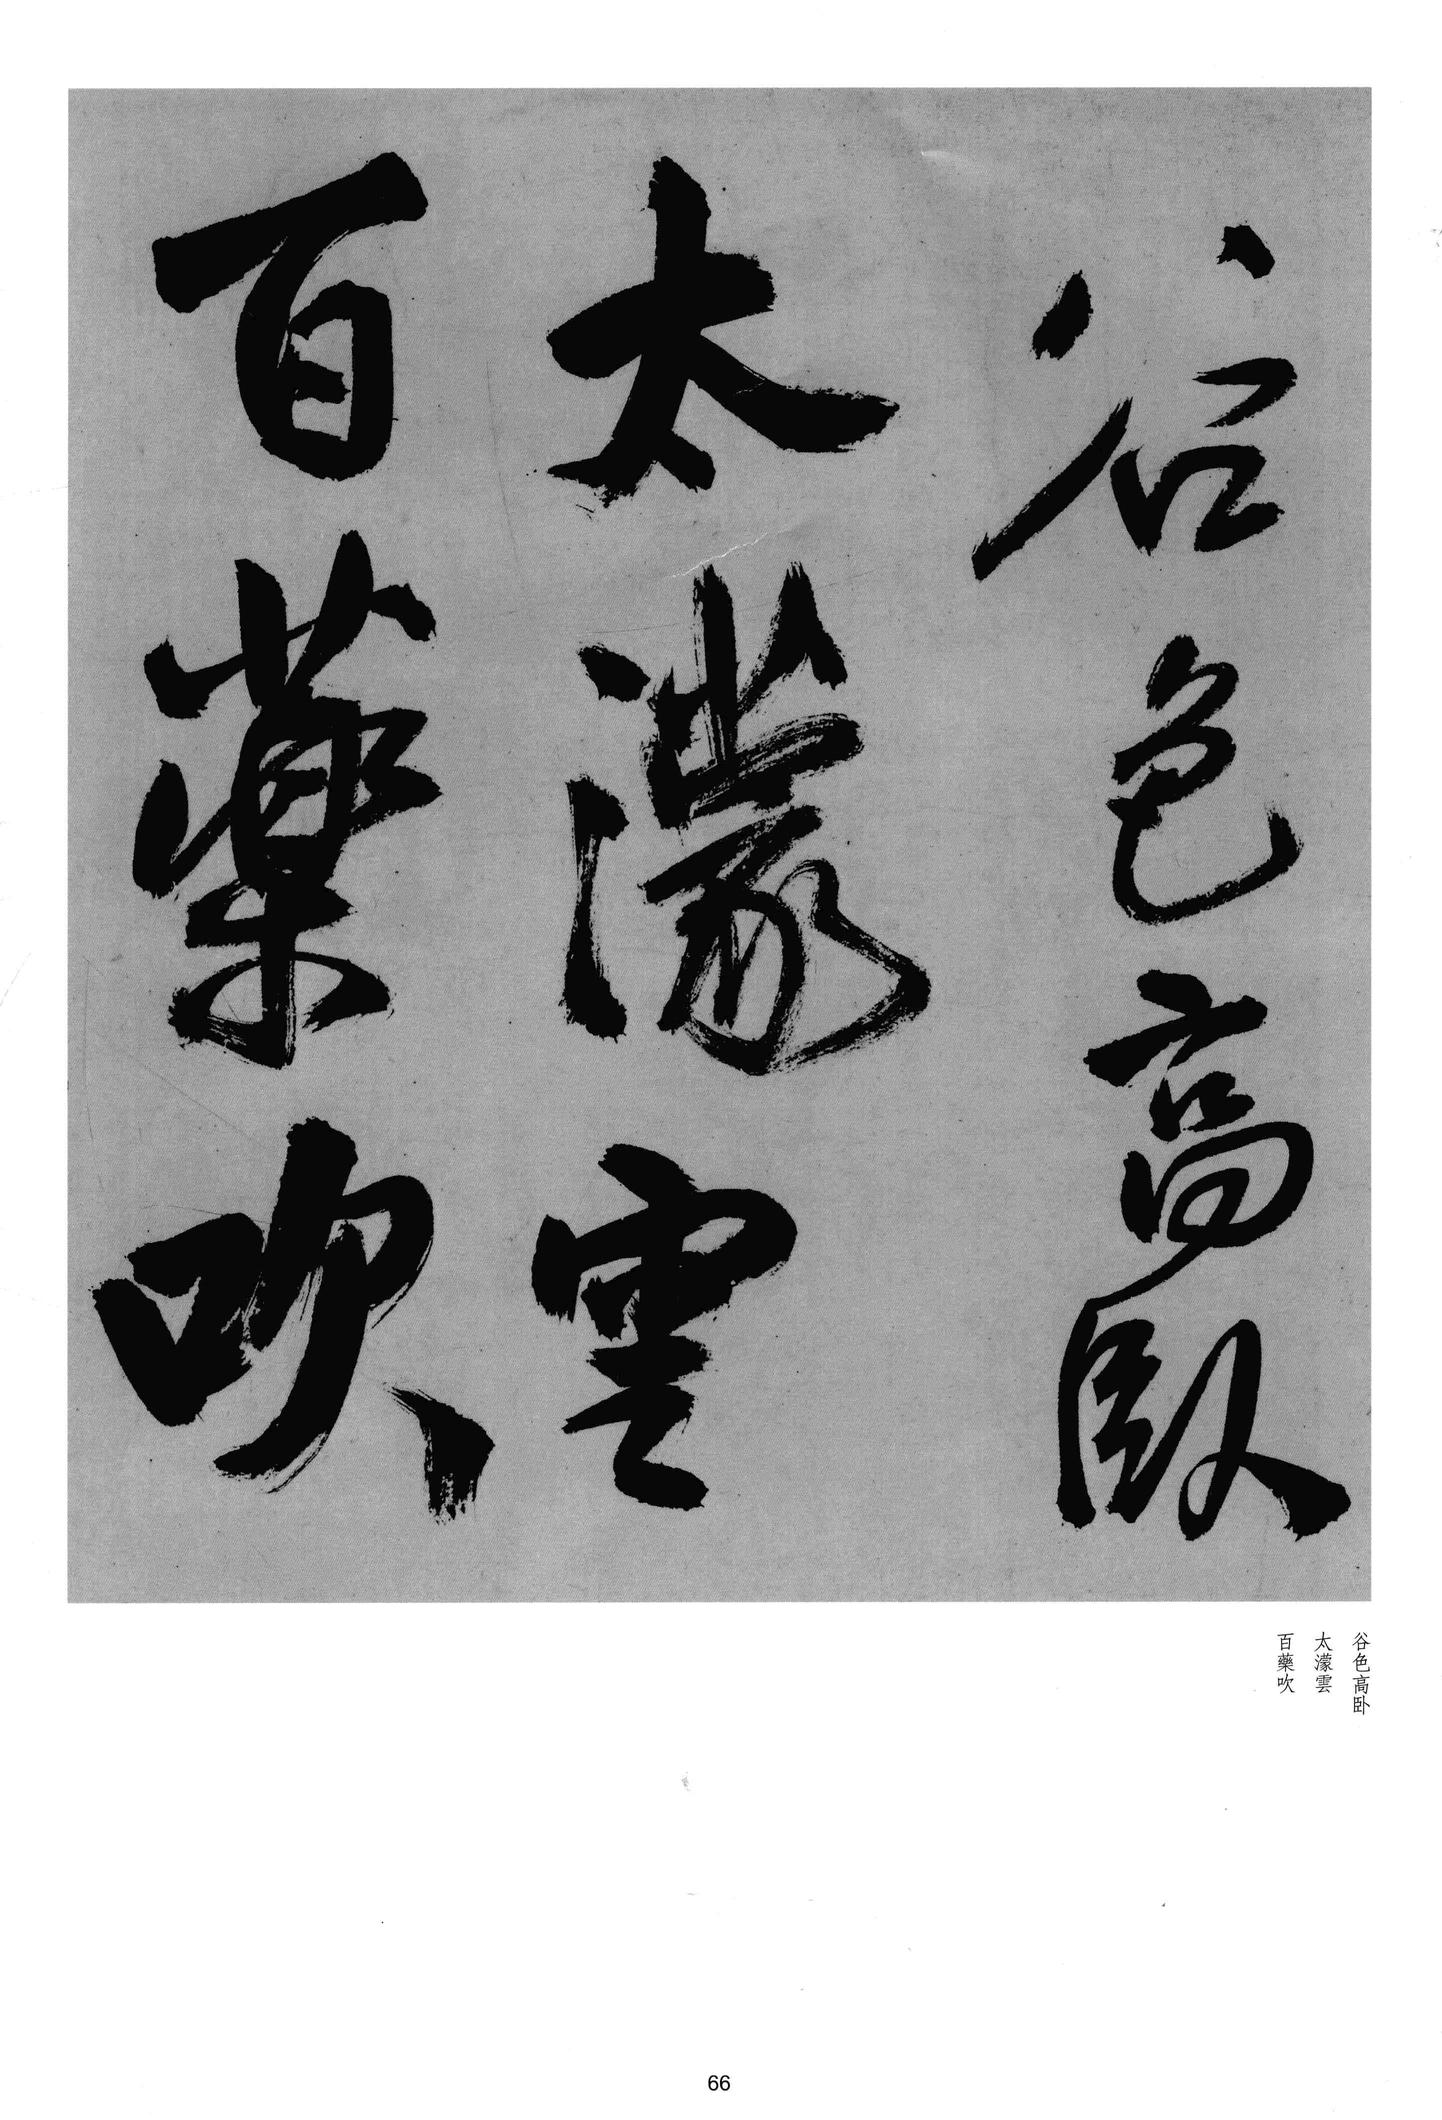 谷色高臥
太濛雲
百藥吹
谷色高卧
太濛雲
百藥吹
66